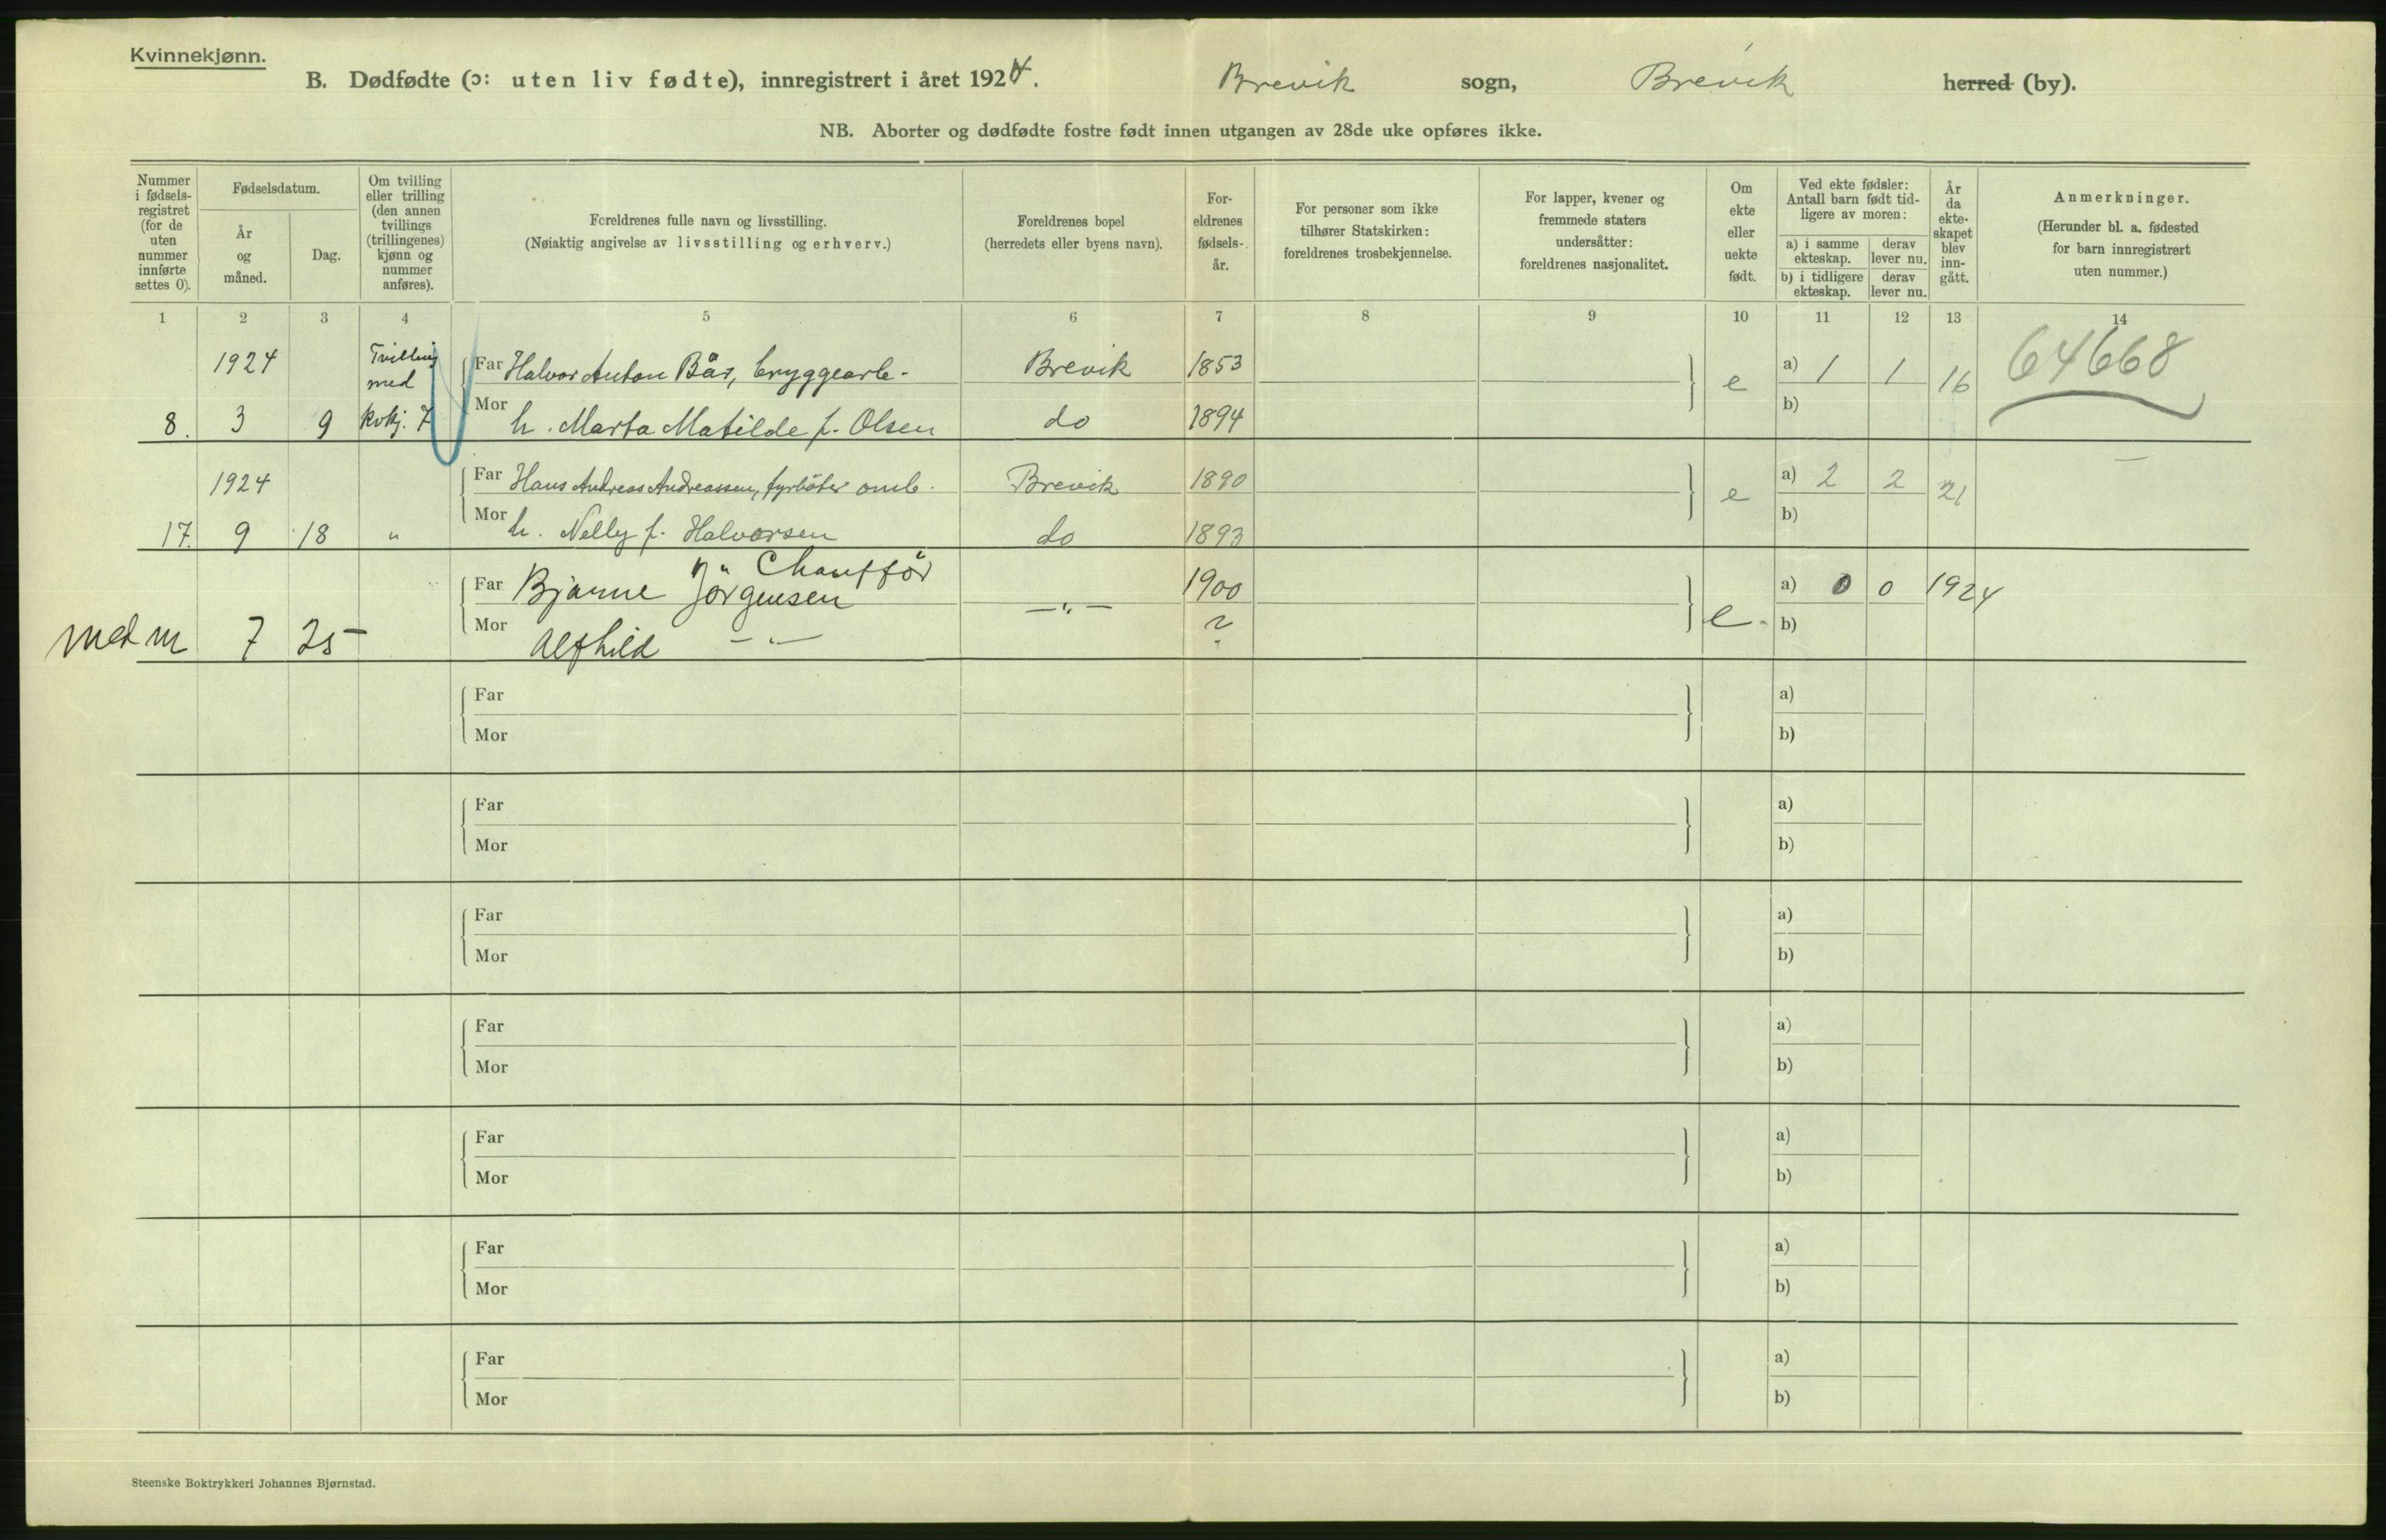 Kvinnekjønn.
B. Dødfødte (ɔ: uten liv fødte), innregistrert i året 1924. Brevik sogn, Brevik herred (by).
NB. Aborter og dødfødte fostre født innen utgangen av 28de uke opføres ikke.
Nummer i fødselsregistret (for de uten nummer innførte settes 0).
Fødselsdatum.
År og måned.
Dag.
Om tvilling eller trilling (den annen tvillings (trillingenes) kjønn og nummer anføres).
Foreldrenes fulle navn og livsstilling.
(Nøiaktig angivelse av livsstilling og erhverv.)
Foreldrenes bopel
(herredets eller byens navn).
For-
eldrenes
fødsels-
år.
For personer som ikke
tilhører Statskirken:
foreldrenes trosbekjennelse.
For lapper, kvener og
fremmede staters
undersåtter:
foreldrenes nasjonalitet.
Om
ekte
eller
uekte
født.
Ved ekte fødsler:
Antall barn født tid-
ligere av moren:
a) i samme ekteskap. derav lever nu.
b) i tidligere ekteskap. derav lever nu.
År
da
ekte-
skapet
blev
inn-
gått.
Anmerkninger.
(Herunder bl. a. fødested
for barn innregistrert
uten nummer.)
1 2 3 4 5 6 7 8 9 10 11 12 13 14
1924 Tvilling med Far Halvor Anton Bås, bryggearb. Brevik 1853 e a) 1 1 16 64668
8. 3 9 kvkj. 7 Mor h. Marta Matilde f. Olsen do 1894 b)
1924 Far Hans Andreas Andreassen, fyrbøter omb. Brevik 1890 e a) 2 2 21 —
17. 9 18 " Mor h. Nelly f. Halvorsen do 1893 b)
Far Bjarne Jörgensen Chaufför —"— 1900 e. a) 0 0 1924
med m 7 25 Mor Alfhild —"— ? b)
Far a)
Mor b)
Far a)
Mor b)
Far a)
Mor b)
Far a)
Mor b)
Far a)
Mor b)
Far a)
Mor b)
Far a)
Mor b)
Steenske Boktrykkeri Johannes Bjørnstad.